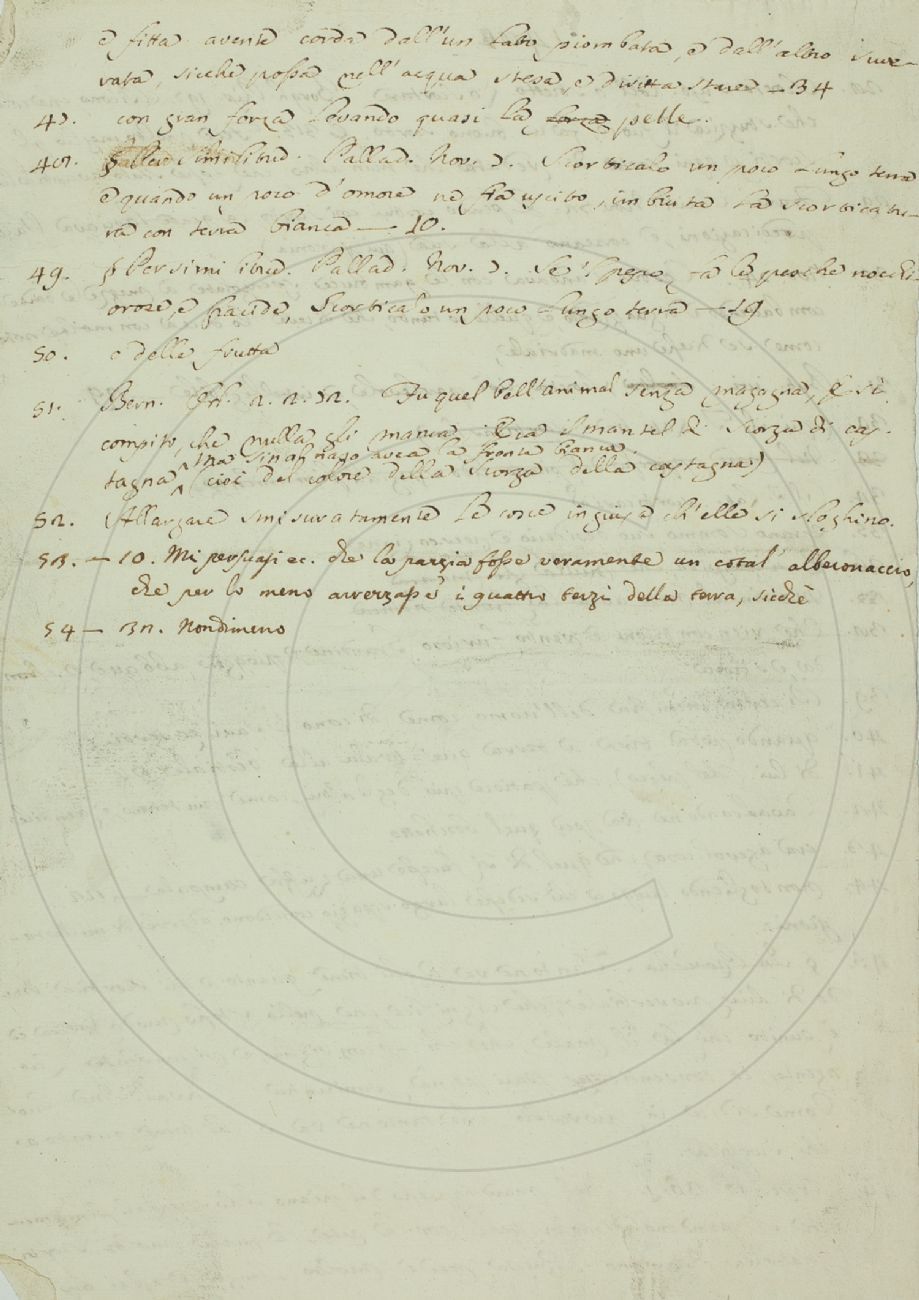 è fitta avente corda dall'un lato piombata, e dall'altro suve-
rata, sicchè possa nell'acqua stesa, e diritta stare — 34
47. con gran forza levando quasi la forza pelle.
48. ibid. Pallad. Nov. 7. Scorticalo un poco lungo terra
e quando un poco d'omore ne fia uscito, imbiuta la scorticatu-
ra con terra bianca — 10.
49. § Persimil ibid. Pallad. Nov. 7. Se 'l pero fa le peoche nocchi
orose, e fracide, Scorticalo un poco lungo terra — 19
50. o delle frutta
51. Bern. Orl. 2. 2. 72. Fu quel bell'animal senza magagna, E sì
compito, che nulla gli manca: Era 'l mantel di scorza di cas-
tagna, Ma sin al naso avea la fronte bianca.
(cioè del colore della scorza della castagna)
52. (Allargare smisuratamente le cosce in guisa ch'elle si sloghino.
53. — 10. Mi persuasi ec. che la pazzia fosse veramente un cotal' alberonaccio,
che per lo meno avvezzasse i quattro terzi della terra, sicchè
54 — 32. Nondimeno